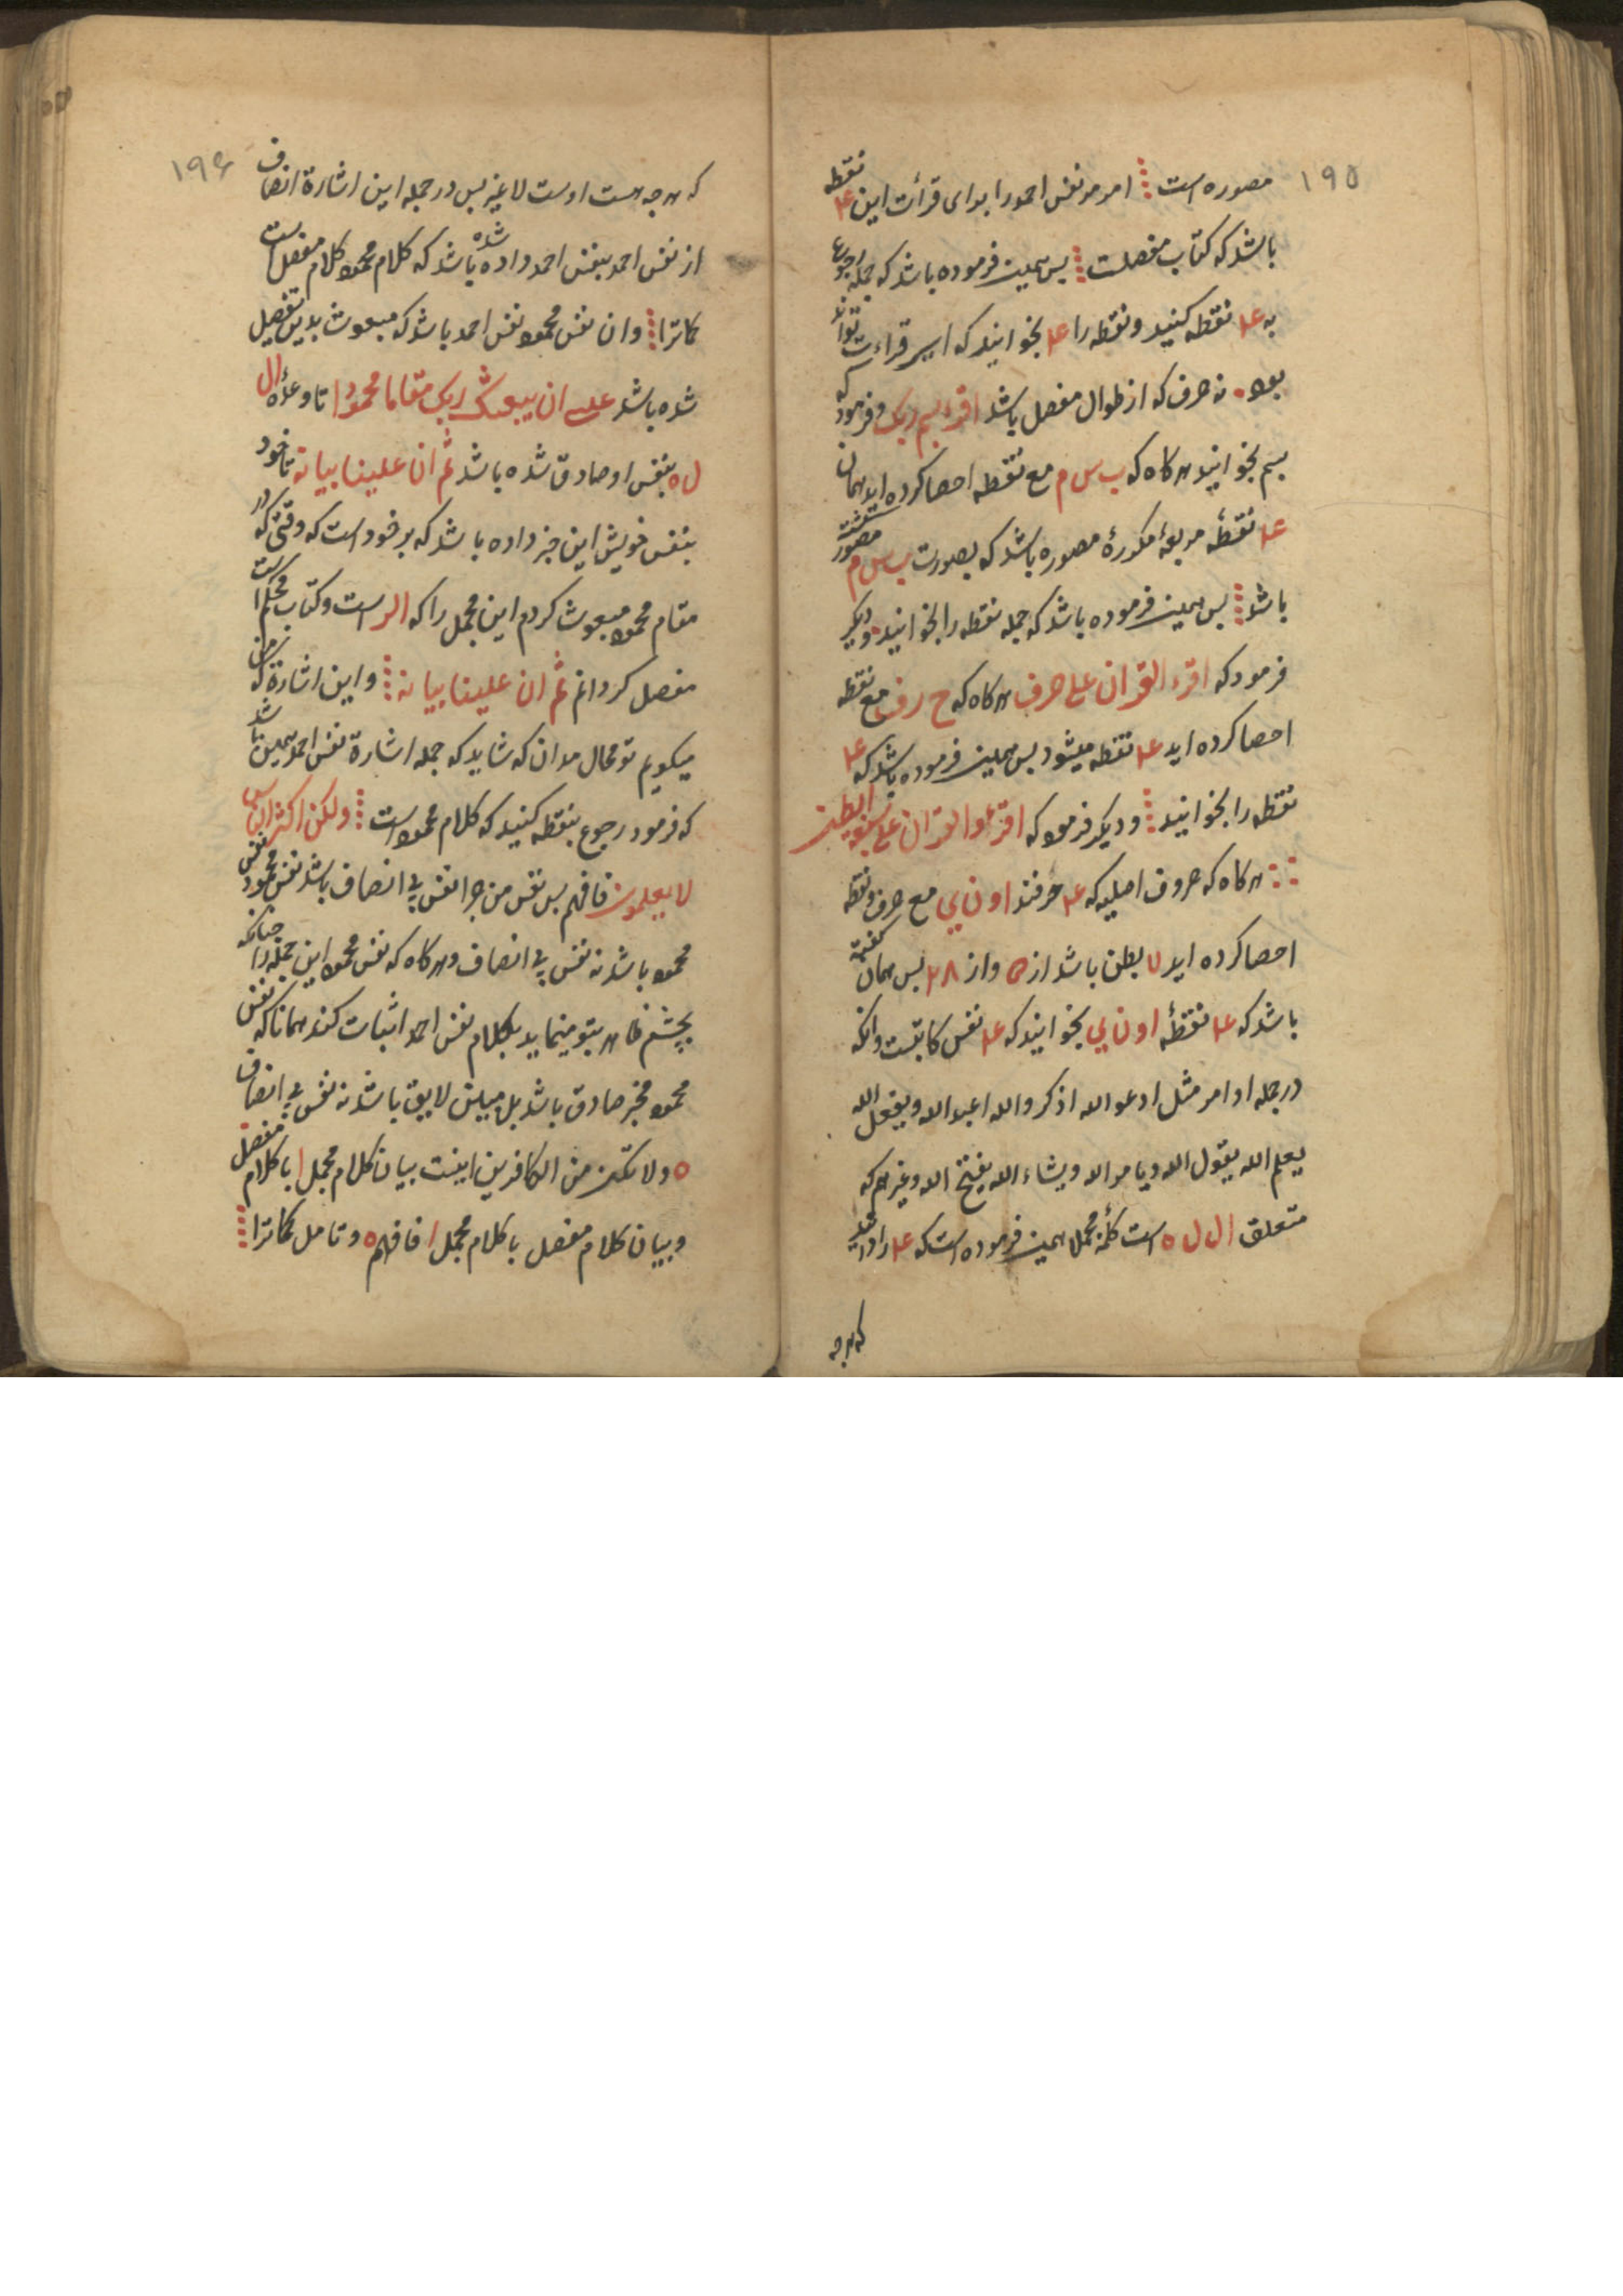 ۱۹۵
مصوره است امر مر نفس احمد را برای قرأت این ۴ نقطه
باشد که کتاب مفصلست پس همین فرموده باشد که جمله رجوع
به ۴ نقطه کنید و نقطه را ۴ بخوانید که ایسر قراءت تواند
بود نه حرف که از طوال مفصل باشد اقرء بسم ربک و فرمود که
بسم بخوانید هرکاه که ب س م مع نقطه احصا کرده اید همان
۴ نقطهٔ مربعهٔ مکررهٔ مصوره باشد که بصورت ب س م مصور
باشد پس همین فرموده باشد که جمله نقطه را بخوانید و دیکر
فرمود که اقرء القران علی حرف هرکاه که ح ر ف مع نقطه
احصا کرده اید ۴ نقطه میشود پس همین فرموده باشد که ۴
نقطه را بخوانید و دیکر فرمود که اقرءوا القران علی سبعة ابطن
هرکاه که حروف اصلیه که ۴ حرفند ا و ن ی مع حرف و نقطه
احصا کرده اید ۷ بطن باشد از ه و از ۲۸ پس همان گفته
باشد که ۴ نقطهٔ ا و ن ی بخوانید که ۴ نفس کاتبست وانکه
در جمله اوامر مثل ادعو الله اذکروالله اعبدالله و یفعل الله
یعلم الله یقول الله و یامر الله و یشاء الله یفتح الله و غیرهم که
متعلق ال ل ه است کأنه مجملا همین فرموده است که ۴ را دانید
که هرچه
۱۹۶
که هرچه هست اوست لاغیر پس در جمله این اشارة انصاف
از نفس احمد بنفس احمد داده شده باشد که کلام محمود کلام مفصلست
کماترا وان نفس محمود نفس احمد باشد که مبعوث بدین تفصیل
شده باشد عسی ان یبعثک ربک مقاما محمودا تا وعدهٔ ال
ل ه بنفس او صادق شده باشد ثم ان علینا بیانه تا خود
بنفس خویش این خبر داده باشد که بر خود است که وقتی که در
مقام محمود مبعوث کردم این مجمل را که الر است و کتاب محکمست
مفصل کردانم ثم ان علینا بیانه و این اشارة که من
میکویم تو محال مدان که شاید که جمله اشارة نفس احمد همین باشد
که فرمود رجوع بنقطه کنید که کلام محمود است ولکن اکثر الناس
لا یعلمون فافهم پس نفس من چرا نفس بی انصاف باشد نفس محمود نفس
محمود باشد نه نفس بی انصاف و هرکاه که نفس محمود این جمله را چنانکه
بچشم ظاهر بتو مینماید بکلام نفس احمد اثبات کند همانا که نفس
محمود مخبر صادق باشد بل مبین لایق باشد نه نفس بی انصاف
ه ولا تکن من الکافرین اینست بیان کلام مجمل ا با کلام مفصل
و بیان کلام مفصل با کلام مجمل ا فافهم ه و تامل کماترا